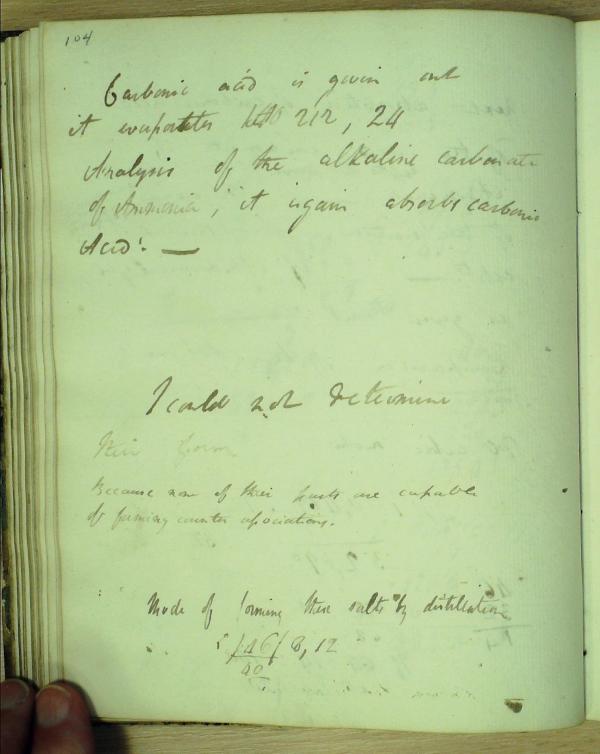 104
Carbonic acid is given out
it evaporates 212, 24
Analysis of the alkaline carbonate
of Ammonia; it again absorbs carbonic
Acid: —
I could not determine
their form
Because none of their parts are capable
of forming counter associations.
Mode of forming these salts by distillation
8, 12
40